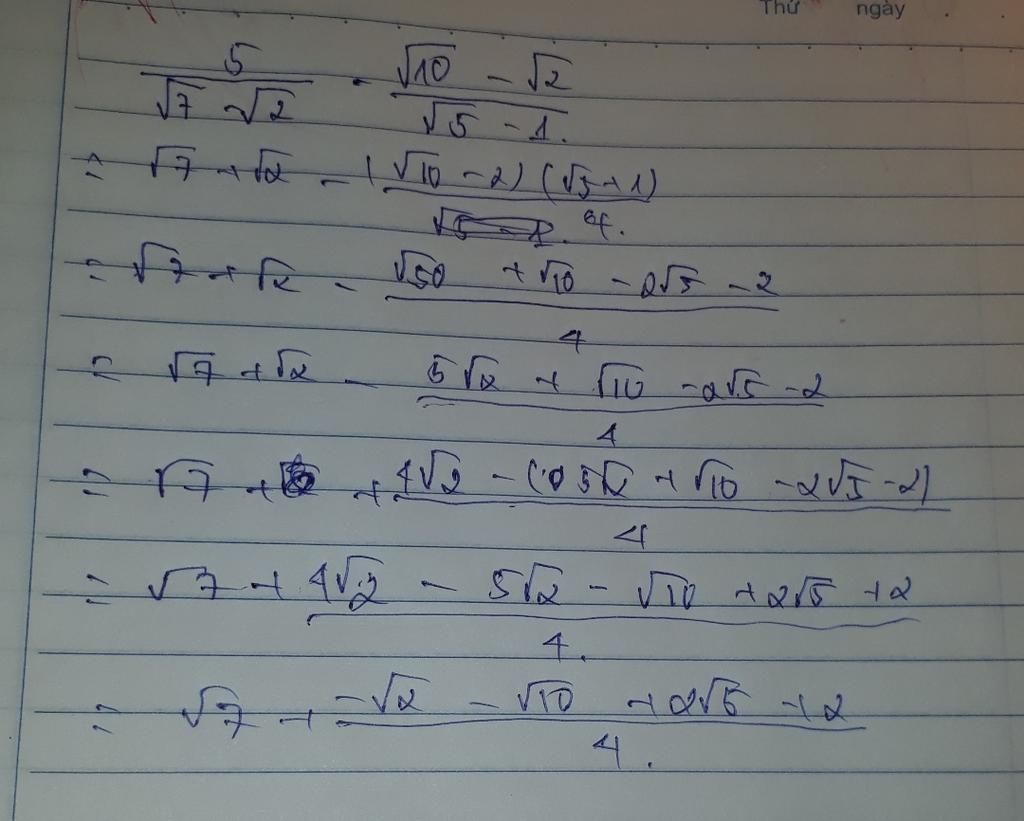 Thứ ngày
5/(√7 √2) - (√10 - √2)/(√5 - 1.)
= √7 + √2 - (√10 - 2) (√5 + 1)/4.
= √7 + √2 - (√50 + √10 - 2√5 - 2)/4
= √7 + √2 - (5√2 + √10 - 2√5 - 2)/4
= √7 + + (4√2 - (5√2 + √10 - 2√5 - 2))/4
= √7 + (4√2 - 5√2 - √10 + 2√5 + 2)/4.
= √7 + (-√2 - √10 + 2√5 + 2)/4.